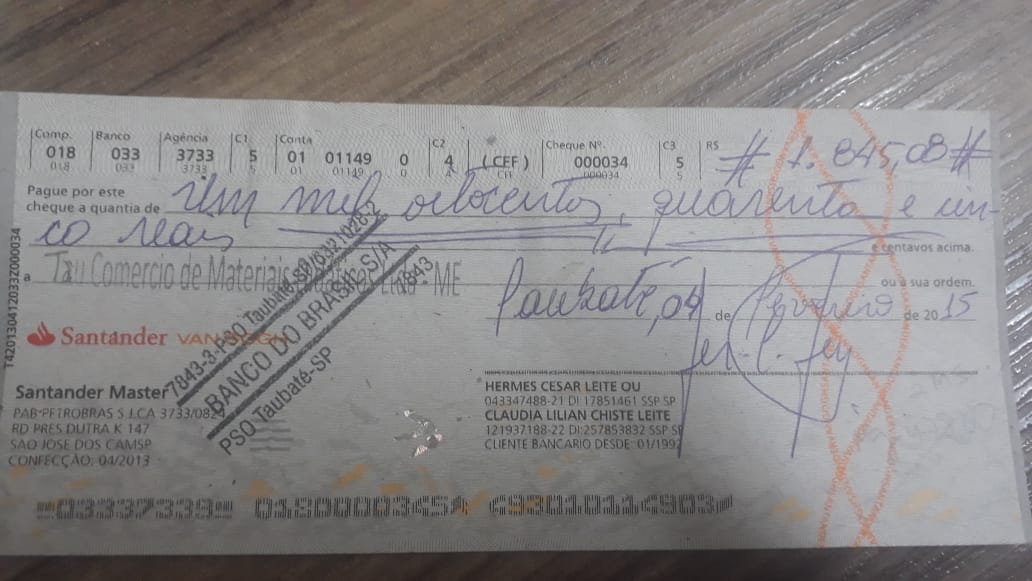 Comp. Banco Agência C1 Conta C2 Cheque Nº. C3 R$
018 033 3733 5 01 01149 0 4 (CEF) 000034 5 # 1.845,08 #
018 033 3733 5 01 01149 0 4 CFF 000034 5
Pague por este
cheque a quantia de Um mil oitocentos, quarenta e cin-
co reais e centavos acima.
a Tau Comercio de Materiais Ltda - ME ou à sua ordem.
Taubaté, 04 de Fevereiro de 2015
Santander
7843-3-PSO Taubaté
BANCO DO BRASIL S/A
1843
PSO Taubaté-SP
Santander Master
PAB PETROBRAS S J CA 3733/082
RD PRES DUTRA K 147
SAO JOSE DOS CAMSP
CONFECÇÃO: 04/2013
HERMES CESAR LEITE OU
043347488-21 DI:17851461 SSP SP
CLAUDIA LILIAN CHISTE LEITE
121937188-22 DI:257853832 SSP SP
CLIENTE BANCARIO DESDE: 01/1992